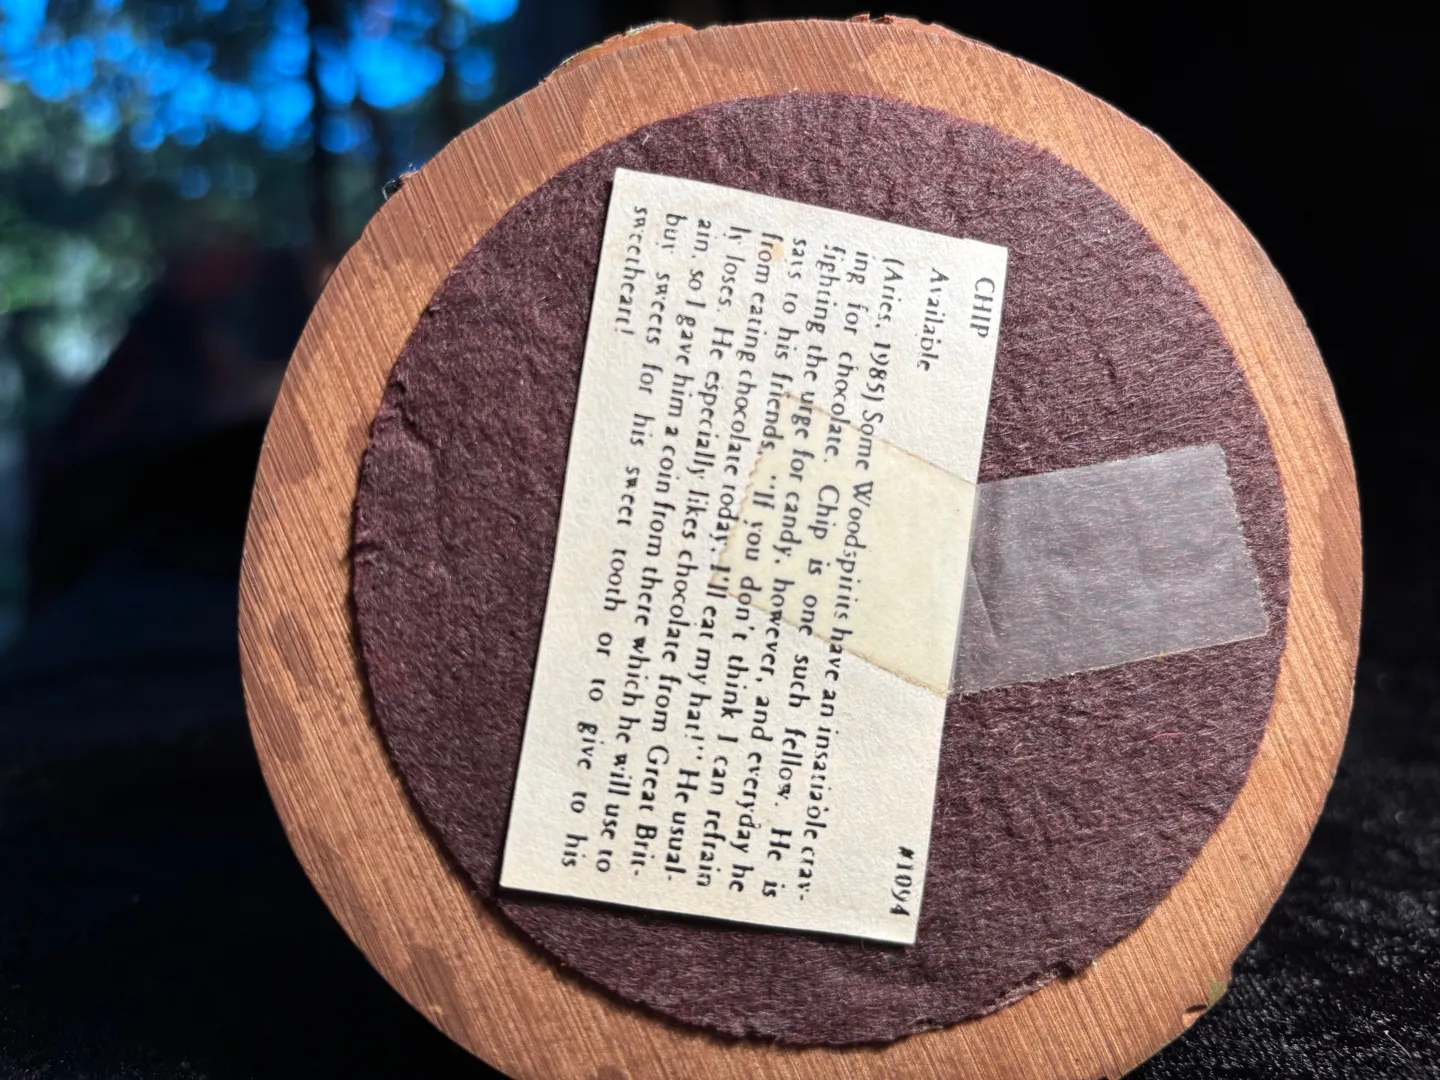 CHIP #1094
Available
(Aries, 1985) Some Woodspirits have an insatiable crav-
ing for chocolate. Chip is one such fellow. He is
fighting the urge for candy, however, and everyday he
says to his friends, "If you don't think I can refrain
from eating chocolate today, I'll eat my hat!" He usual-
ly loses. He especially likes chocolate from Great Brit-
ain, so I gave him a coin from there which he will use to
buy sweets for his sweet tooth or to give to his
sweetheart!